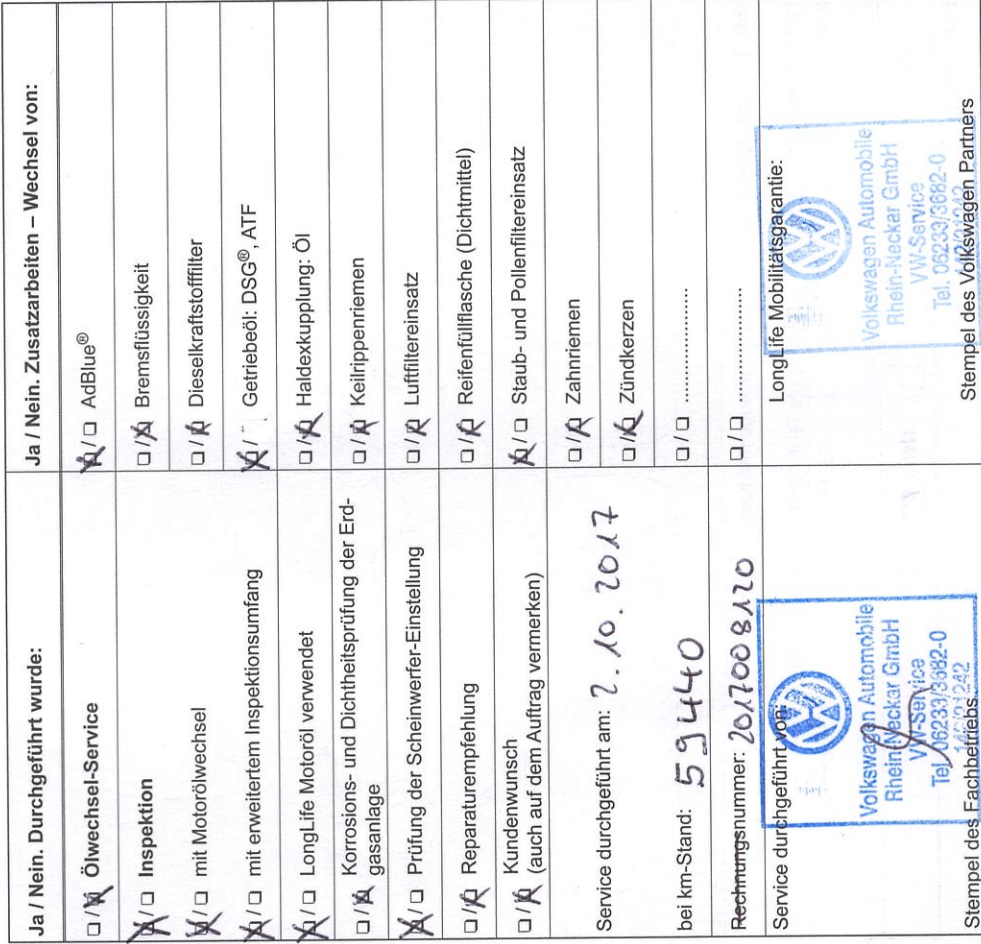 Ja / Nein. Durchgeführt wurde:
Ölwechsel-Service
Inspektion
mit Motorölwechsel
mit erweitertem Inspektionsumfang
LongLife Motoröl verwendet
Korrosions- und Dichtheitsprüfung der Erd-
gasanlage
Prüfung der Scheinwerfer-Einstellung
Reparaturempfehlung
Kundenwunsch
(auch auf dem Auftrag vermerken)
Service durchgeführt am: 2.10.2017
bei km-Stand: 59440
Rechnungsnummer: 2017008120
Service durchgeführt von:
Volkswagen Automobile
Rhein-Neckar GmbH
VW-Service
Tel. 06233/3682-0
Stempel des Fachbetriebs
Ja / Nein. Zusatzarbeiten – Wechsel von:
AdBlue®
Bremsflüssigkeit
Dieselkraftstofffilter
Getriebeöl: DSG®, ATF
Haldexkupplung: Öl
Keilrippenriemen
Luftfiltereinsatz
Reifenfüllflasche (Dichtmittel)
Staub- und Pollenfiltereinsatz
Zahnriemen
Zündkerzen
LongLife Mobilitätsgarantie:
Volkswagen Automobile
Rhein-Neckar GmbH
VW-Service
Tel. 06233/3682-0
Stempel des Volkswagen Partners